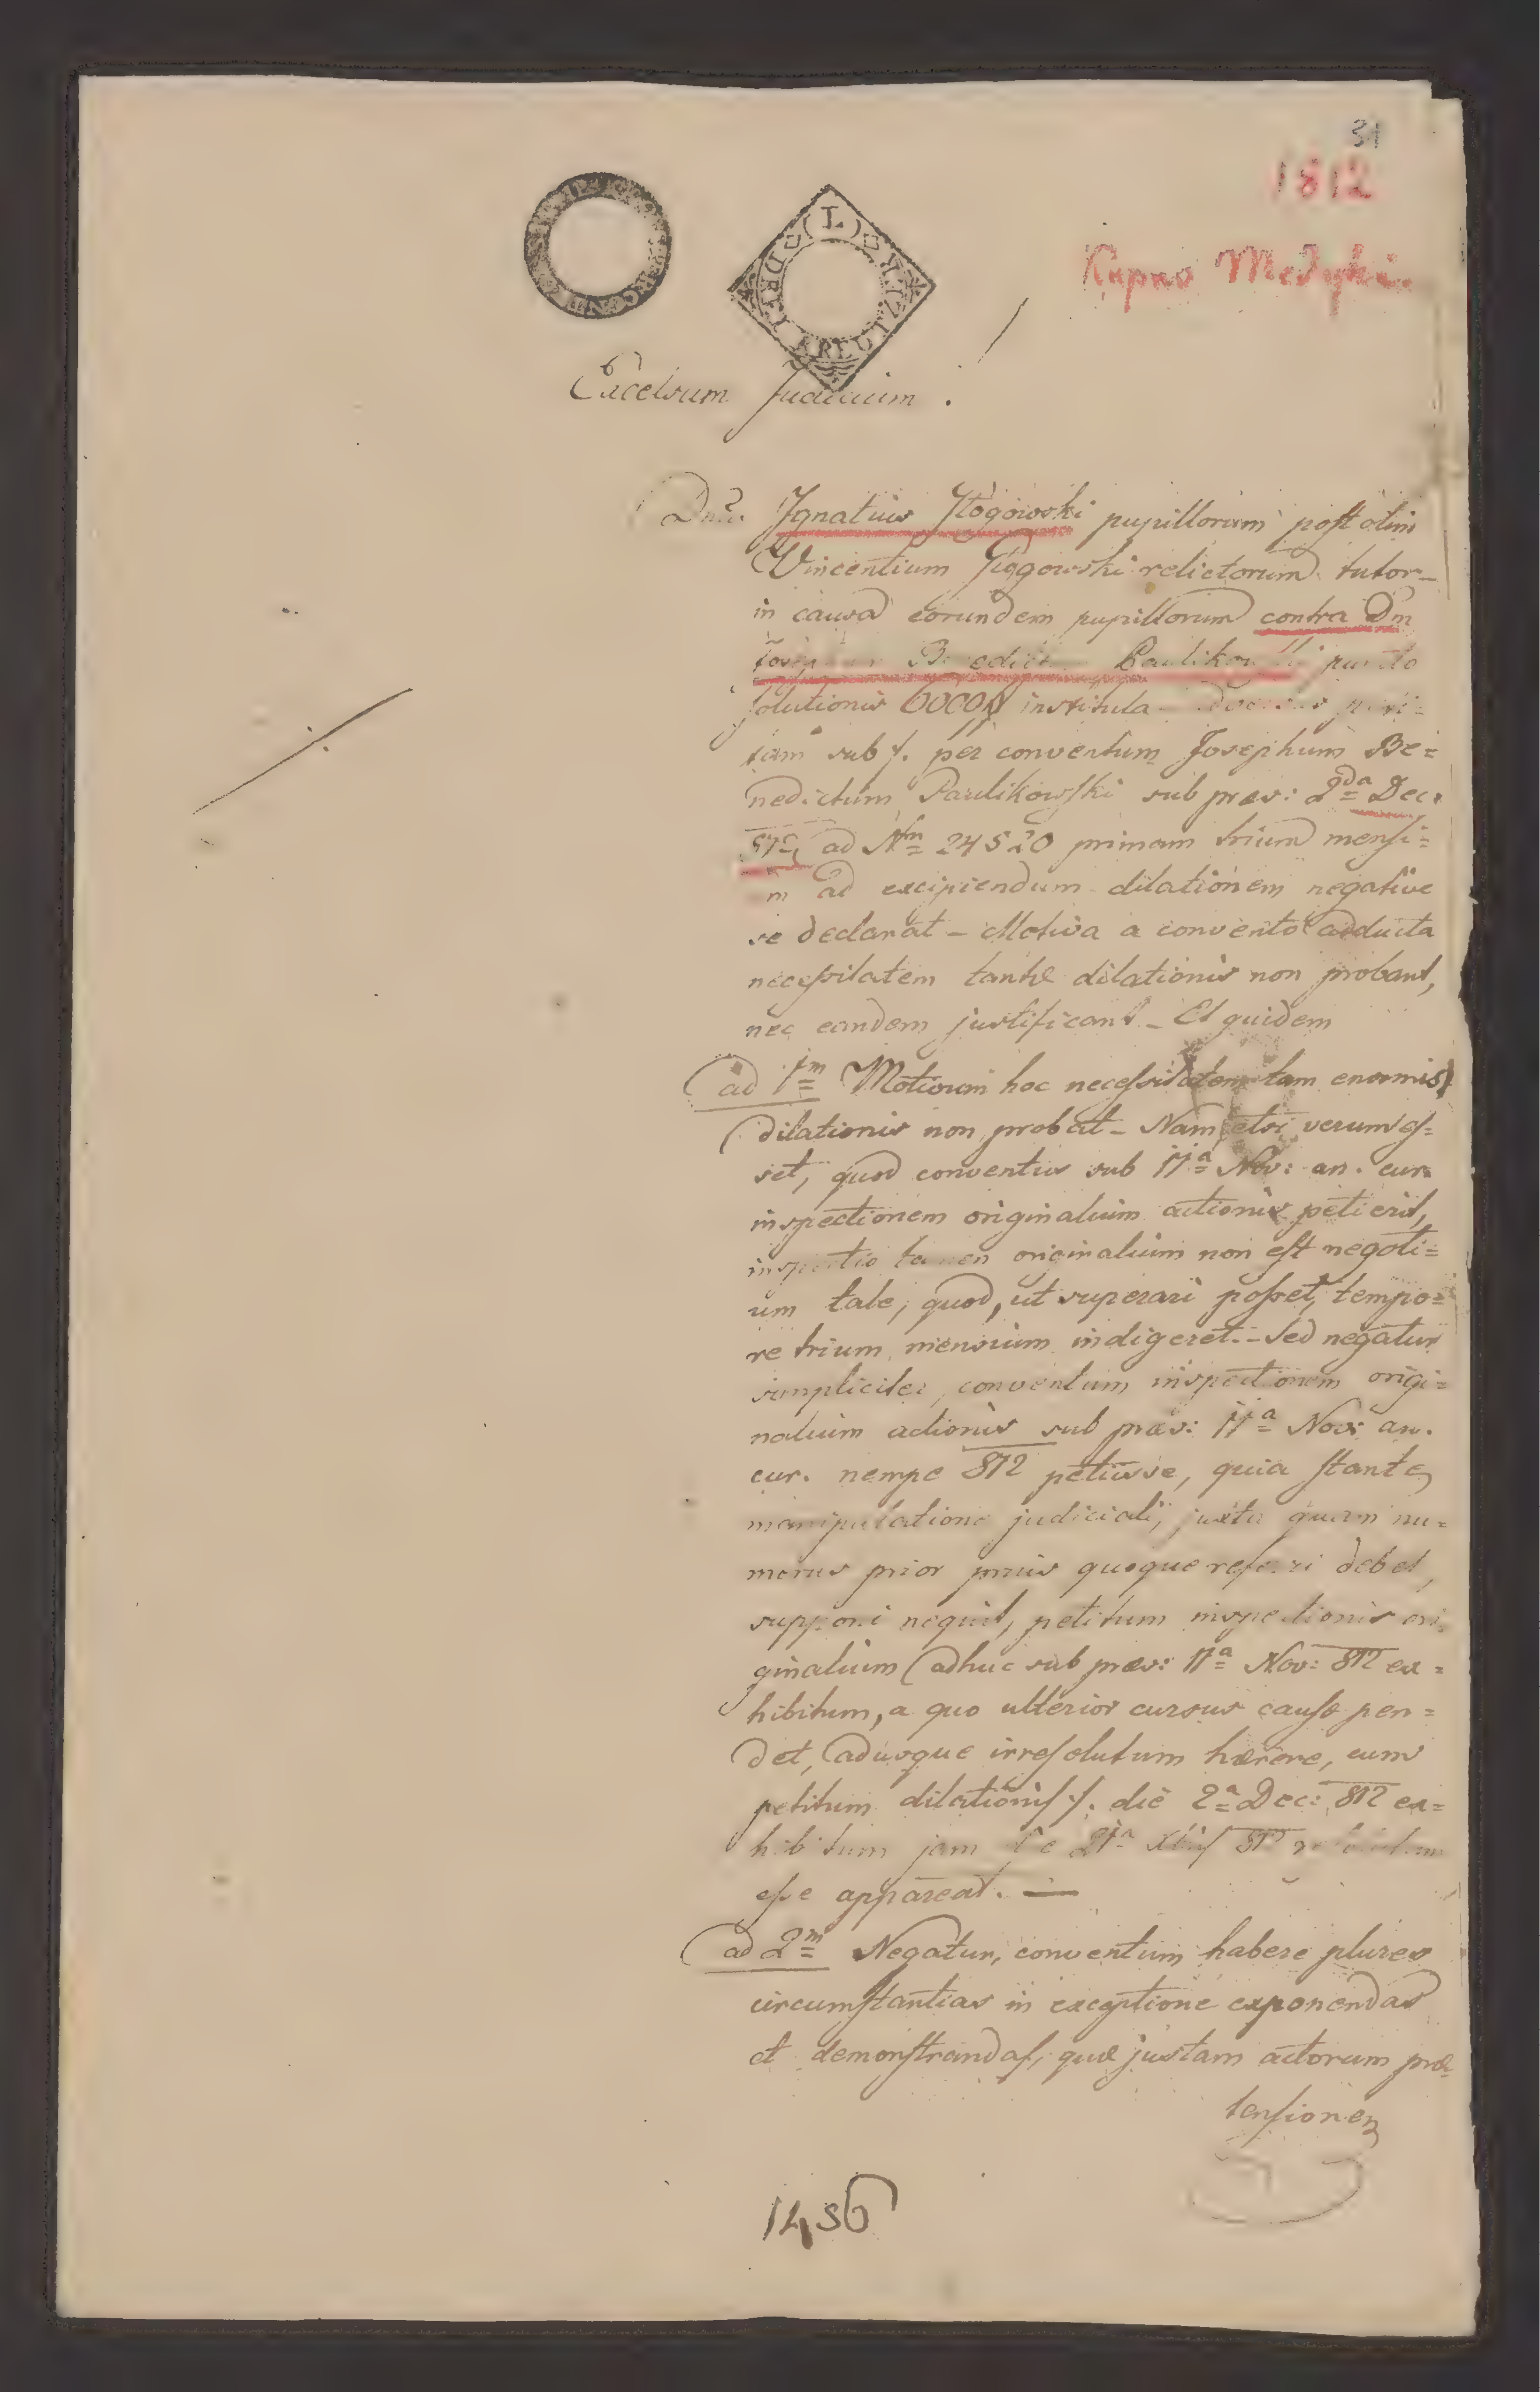 31
1812
Kupno Medyki
L
Excelsum Judicium !
Dnus. Ignatius Głogowski pupillorum post olim
Vincentium Głogowski relictorum tutor
in causa eorundem pupillorum contra Dm
Josephum Benedictum Paulikowski puncto
solutionis 6000 # instituta
tam sub /. per conventum Josephum Be=
nedictum Paulikowski sub præs: 2da Dec.
812 ad Nm 24520 primam trium mensi=
m ad excipiendum dilationem negative
se declarat – Motiva a convento adducta
necessitatem tantæ dilationis non probant,
nec eandem justificant – Et quidem
ad 1m Motivum hoc necessitatem tam enormis
dilationis non probat – Nam etsi verum es=
set, quod conventus sub 11a Nov: an. cur.
inspectionem originalium actionis petierit,
inspectio tamen originalium non est negoti=
um tale, quod, ut superari posset, tempo=
re trium mensium indigeret. – Sed negatur
simpliciter, conventum inspectionem origi=
nalium actionis sub præs: 11a Nov: an.
cur. nempe 812 petiisse, quia stante
manipulatione judiciali, juxta quam nu=
merus prior prius quoque referri debet,
supponi nequit, petitum inspectionis ori=
ginalium adhuc sub præs: 11a Nov: 812 ex=
hibitum, a quo ulterior cursus causæ pen=
det, adusque irresolutum hærere, cum
petitum dilationis /. die 2a Dec: 812 ex=
hibitum jam de 21a Xbris 812 resolutum
esse appareat. —
ad 2m Negatur, conventum habere plures
circumstantias in exceptione exponendas
et demonstrandas, quæ justam actorum præ
tensionem
1456